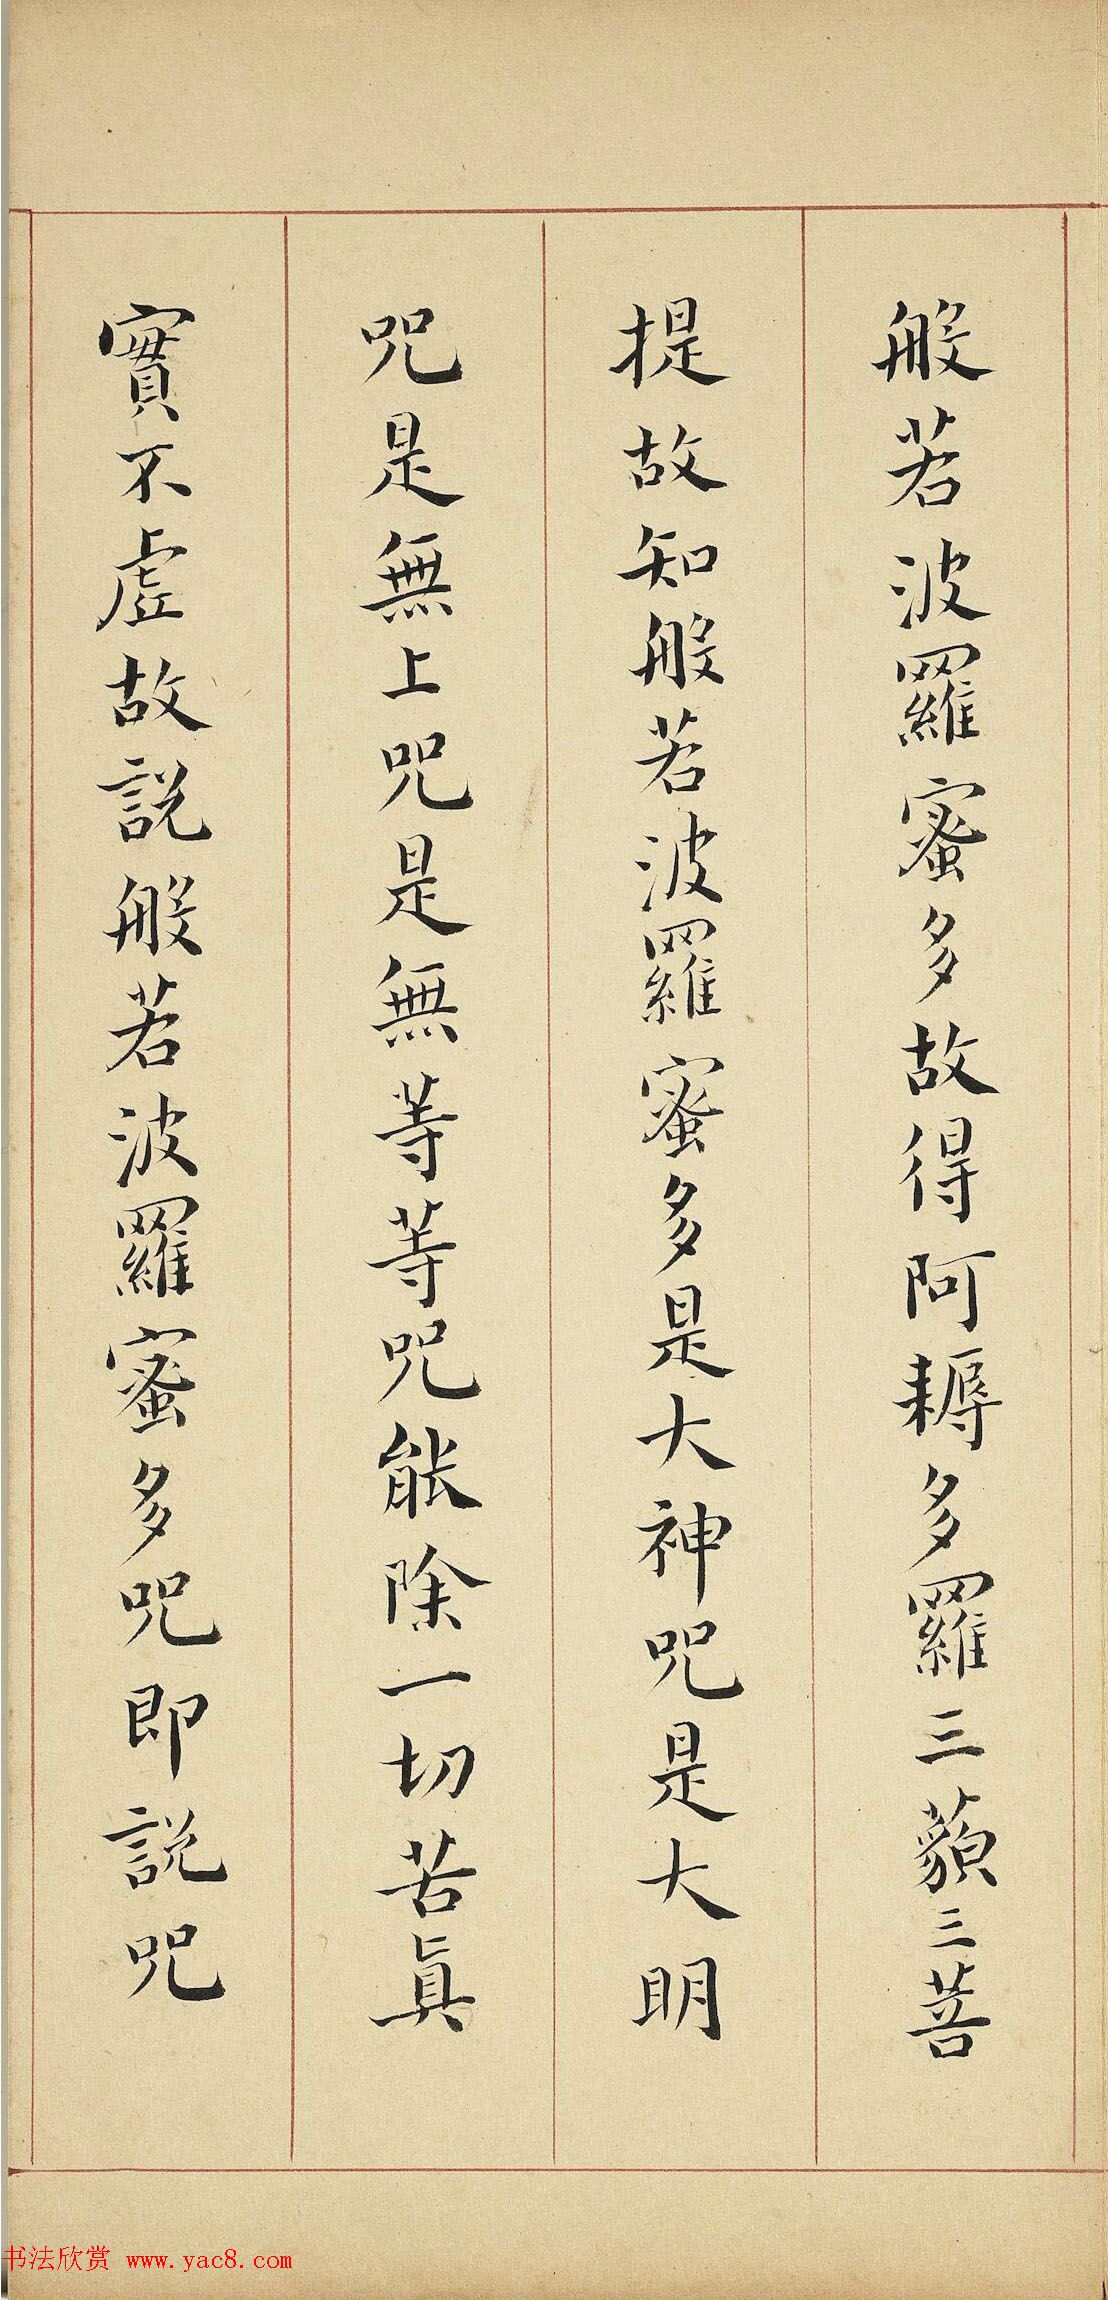 般若波羅蜜多故得阿耨多羅三藐三菩
提故知般若波羅蜜多是大神咒是大明
咒是無上咒是無等等咒能除一切苦真
實不虛故說般若波羅蜜多咒即說咒
书法欣赏 www.yac8.com